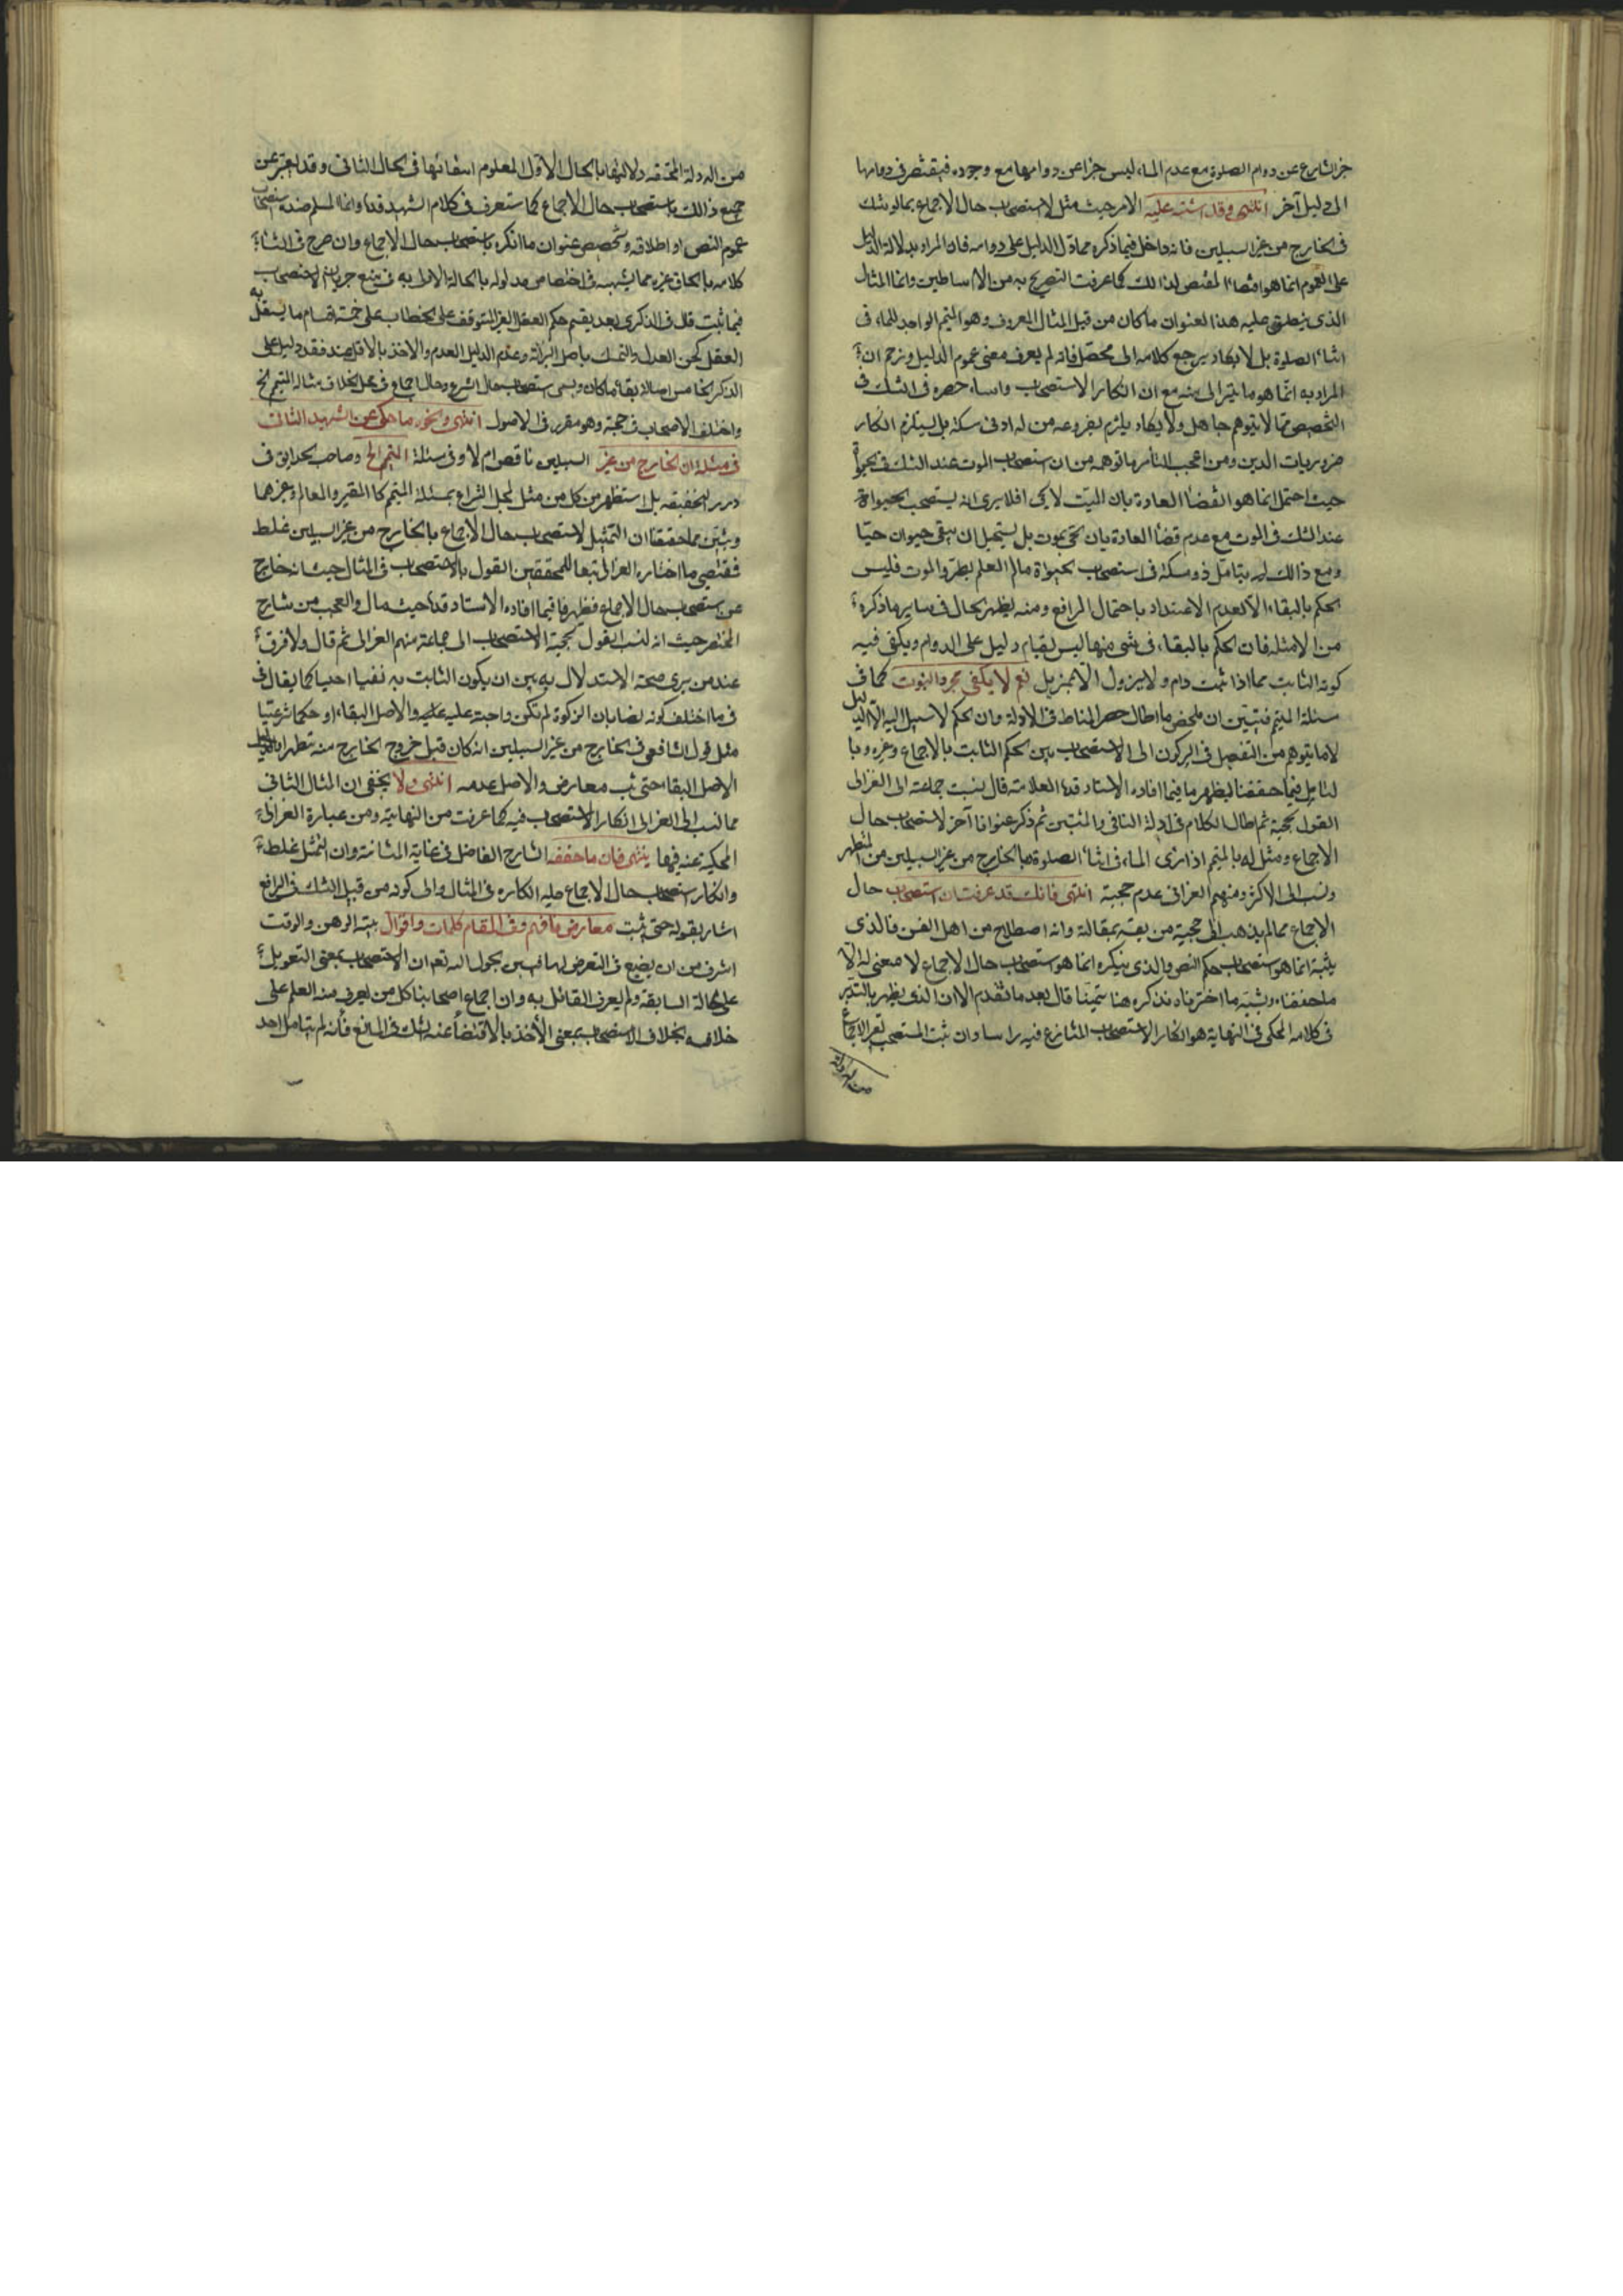 خبر الشارع عن دوام الصلوة مع عدم الماء ليس خبرا عن دوامها مع وجوده فيقتصر في دوامها
الى دليل آخر انتهى وقد اشتبه عليه الامر حيث مثل لاستصحاب حال الاجماع بما لو شك
في الخارج من غير السبيلين فانه داخل فيما ذكره مما دل الدليل على دوامه فان المراد بدلالة الدليل
على العموم انما هو اقتضاء المقتضي لذلك كما عرفت التصريح به من الاساطين وانما المثال
الذي ينطبق عليه هذا العنوان ما كان من قبيل المثال المعروف وهو المتيمم الواجد للماء في
اثناء الصلوة بل لا يكاد يرجع كلامه الى محصل فانه لم يعرف معنى عموم الدليل وزعم ان
المراد به انما هو ما يترائى منه مع ان انكار الاستصحاب راسا، حصره في الشك في
التخصيص مما لا يتوهم جاهل ولا يكاد يلتزم بفروعه من له ادنى مسكة بل يستلزم انكار
ضروريات الدين ومن اعجب المناسر ما توهمه من ان استصحاب الموت عند الشك في الحيوة
حيث احتمل انما هو لقضاء العادة بان الميت لا يحيى افلا يرى انه يستصحب الحيوة
عند الشك في الموت مع عدم قضاء العادة بان الحي يموت بل يستحيل ان يبقى حيوان حيا
ومع ذلك لم يتامل ذو مسكة في استصحاب الحيوة ما لم العلم بطرو الموت فليس
الحكم بالبقاء الا لعدم الاعتداد باحتمال الرافع ومنه يظهر الحال في ساير ما ذكره
من الامثلة فان الحكم بالبقاء في شئ منها ليس لقيام دليل على الدوام ويكفى فيه
كونه الثابت مما اذا ثبت دام ولا يزول الا بمزيل نعم لا يكفي مجرد الثبوت كما في
مسئلة المتيمم فتبين ان ملخص ما اطال حصر المناط في الادلة وان الحكم لا سبيل اليه الا الدليل
لا ما يتوهم من التفصيل في الركون الى الاستصحاب بين الحكم الثابت بالاجماع وغيره وبا
لتامل فيما حققنا ليظهر ما فيما افاده الاستاد قده العلامة قال نسبت جماعة الى الغزالى
القول بحجيته ثم اطال الكلام في ادلة النافي والمثبتين ثم ذكر عنوانا آخر لاستصحاب حال
الاجماع ومثل له بالمتيمم اذا رأى الماء في اثناء الصلوة وبالخارج من غير السبيلين من المتطهر
ونسب الى الاكثر ومنهم الغزالى عدم حجيته انتهى فانك قد عرفت ان استصحاب حال
الاجماع مما لم يذهب الى حجيته من يعتد بمقالته وانه اصطلاح من اهل الفن فالذي
يثبته انما هو استصحاب حكم النص والذي ينكره انما هو استصحاب حال الاجماع لا معنى له الا
ما حققناه ويثبته ما اخترناه نذكره هنا تيمنا قال بعد ما تقدم الا ان الذي يظهر بالتدبر
في كلامه المحكى في النهاية هو انكار الاستصحاب المتنازع فيه راسا وان ثبت المستصحب بغير الاجماع
من الادلة
من الادلة المختصه دلالتها بالحال الاول المعلوم انتفائها في الحال الثاني وقد يعبر عن
جميع ذلك باستصحاب حال الاجماع كما ستعرف في كلام الشهيد قده وانما المسلم عنده استصحاب
عموم النص او اطلاقه وتخصيص عنوان ما انكره باستصحاب حال الاجماع وان صرح في اثناء
كلامه بالحاق غيره مما يشبهه في اختصاص مدلوله بالحالة الاولى به في منع جريان الاستصحاب
فيما ثبت قال في الذكرى بعد تقسيم حكم العقل الغير المتوقف على الخطاب على خمسة اقسام ما يستقل به
العقل كحسن العدل والتمسك باصل البرائة وعدم الدليل العدم والاخذ بالاقل عند فقد دليل على
الاكثر الخامس اصالة بقاء ما كان ويسمى استصحاب حال الشرع وحال الاجماع في محل الخلاف مثاله المتيمم الخ
واختلف الاصحاب في حجيته وهو مقرر في الاصول انتهى ونحوه ما حكى عن الشهيد الثانى
في مسئلة ان الخارج من غير السبيلين ناقض ام لا وفى مسئلة المتيمم الخ وصاحب الحدائق في
درر النجفيه بل استظهر من كل من مثل لمحل النزاع بمسئلة المتيمم كالمعتبر والمعالم وغيرهما
وتبين مما حققنا ان التمثيل لاستصحاب حال الاجماع بالخارج من غير السبيلين غلط
فمقتضى ما اختاره الغزالى تبعا للمحققين القول بالاستصحاب في المثال حيث انه خارج
عن استصحاب حال الاجماع فظهر ما فيما افاده الاستاد قده حيث مال والعجب من شارح
المختصر حيث انه نسب القول بحجية الاستصحاب الى جماعة منهم الغزالى ثم قال ولا فرق
عند من يرى صحة الاستدلال به بين ان يكون الثابت به نفيا اصليا كما يقال في
في ما اختلف كونه نصابا ان الزكوة لم تكن واجبة عليه والاصل البقاء او حكما شرعيا
مثل قول الشافعى في الخارج من غير السبيلين انه كان قبل خروج الخارج منه متطهرا بالدليل
الاصل البقاء حتى ثبت معارض والاصل عدمه انتهى ولا يخفى ان المثال الثاني
مما نسب الى الغزالى انكار الاستصحاب فيه كما عرفت من النهاية ومن عبارة الغزالى
المحكية عنه فيها ينتهى فان ما حققه الشارح الفاضل في غاية المتانة وان التمثيل غلط
وانكار استصحاب حال الاجماع عليه انكاره في المثال والى كونه من قبيل الشك في الرافع
اشار بقوله حتى يثبت معارض فافهم وفى المقام كلمات واقوال بينة الوهن والوقت
اشرف من ان يضيع في التعرض لها فبين بحول الله نعم ان الاستصحاب بمعنى التعويل
على الحالة السابقة ولم يعرف القائل به وان اجماع اصحابنا كل من يعرف منه العلم على
خلافه بخلاف الاستصحاب بمعنى الأخذ بالاقتضاء عند الشك في المانع فأنه لم يتامل احد